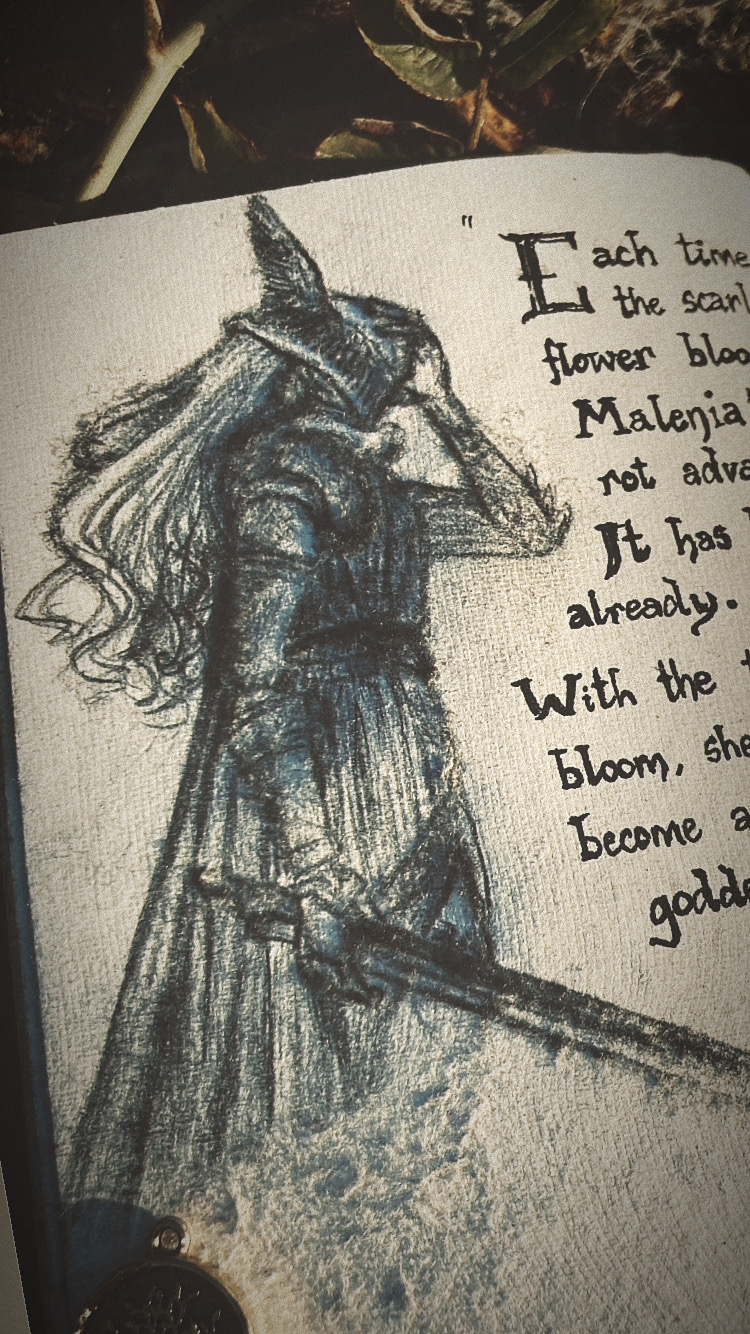 "Each time
the scarl
flower bloo
Malenia'
rot adva
It has
already.
With the t
bloom, she
become a
godde